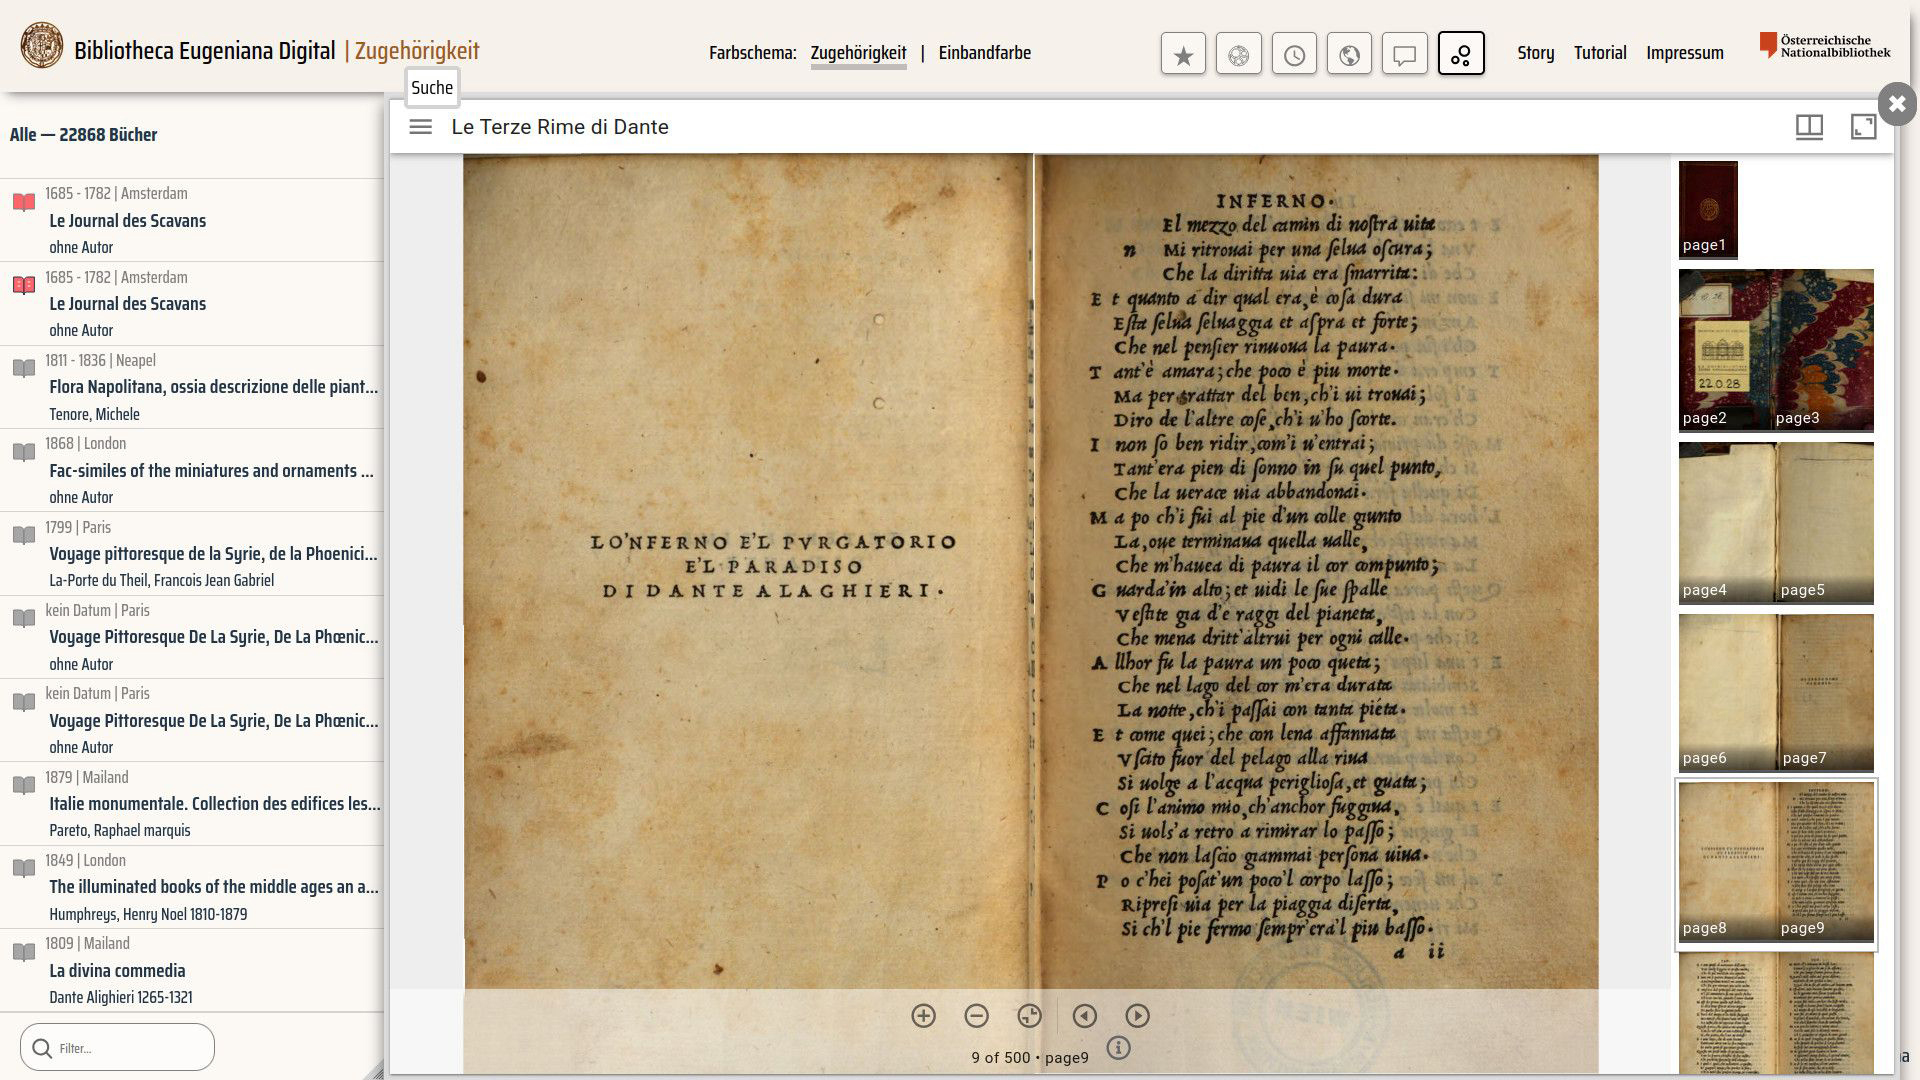 Bibliotheca Eugeniana Digital | Zugehörigkeit
Farbschema: Zugehörigkeit | Einbandfarbe
Story Tutorial Impressum
Österreichische
Nationalbibliothek
Suche
Alle — 22868 Bücher
1685 - 1782 | Amsterdam
Le Journal des Scavans
ohne Autor
1685 - 1782 | Amsterdam
Le Journal des Scavans
ohne Autor
1811 - 1836 | Neapel
Flora Napolitana, ossia descrizione delle piant...
Tenore, Michele
1868 | London
Fac-similes of the miniatures and ornaments ...
ohne Autor
1799 | Paris
Voyage pittoresque de la Syrie, de la Phoenici...
La-Porte du Theil, Francois Jean Gabriel
kein Datum | Paris
Voyage Pittoresque De La Syrie, De La Phœnic...
ohne Autor
kein Datum | Paris
Voyage Pittoresque De La Syrie, De La Phœnic...
ohne Autor
1879 | Mailand
Italie monumentale. Collection des edifices les...
Pareto, Raphael marquis
1849 | London
The illuminated books of the middle ages an a...
Humphreys, Henry Noel 1810-1879
1809 | Mailand
La divina commedia
Dante Alighieri 1265-1321
Filter...
Le Terze Rime di Dante
LO'NFERNO E'L PVRGATORIO
E'L PARADISO
DI DANTE ALAGHIERI.
INFERNO.
El mezzo del camin di noſtra uita
n Mi ritrouai per una ſelua oſcura;
Che la diritta uia era ſmarrita:
E t quanto a dir qual era, è coſa dura
Eſta ſelua ſeluaggia et aſpra et forte;
Che nel penſier rinuoua la paura.
T ant'è amara; che poco è piu morte.
Ma per trattar del ben, ch'i ui trouai;
Diro de l'altre coſe, ch'i u'ho ſcorte.
I non ſo ben ridir, com'i u'entrai;
Tant'era pien di ſonno in ſu quel punto,
Che la uerace uia abbandonai.
M a po ch'i fui al pie d'un colle giunto
La, oue terminaua quella ualle,
Che m'hauea di paura il cor compunto;
G uarda'in alto; et uidi le ſue ſpalle
Veſtite gia d'e raggi del pianeta,
Che mena dritt'altrui per ogni calle.
A llhor fu la paura un poco queta;
Che nel lago del cor m'era durata
La notte, ch'i paſſai con tanta pieta.
E t come quei; che con lena affannata
Vſcito fuor del pelago alla riua
Si uolge a l'acqua periglioſa, et guata;
C oſi l'animo mio, ch'anchor fuggiua,
Si uolſ'a retro a rimirar lo paſſo;
Che non laſcio giammai perſona uiua.
P o c'hei poſat'un poco'l corpo laſſo;
Ripreſi uia per la piaggia diſerta,
Si ch'l pie fermo ſempr'era'l piu baſſo.
a ii
9 of 500 • page9
page1
22.0.28
page2 page3
page4 page5
page6 page7
page8 page9